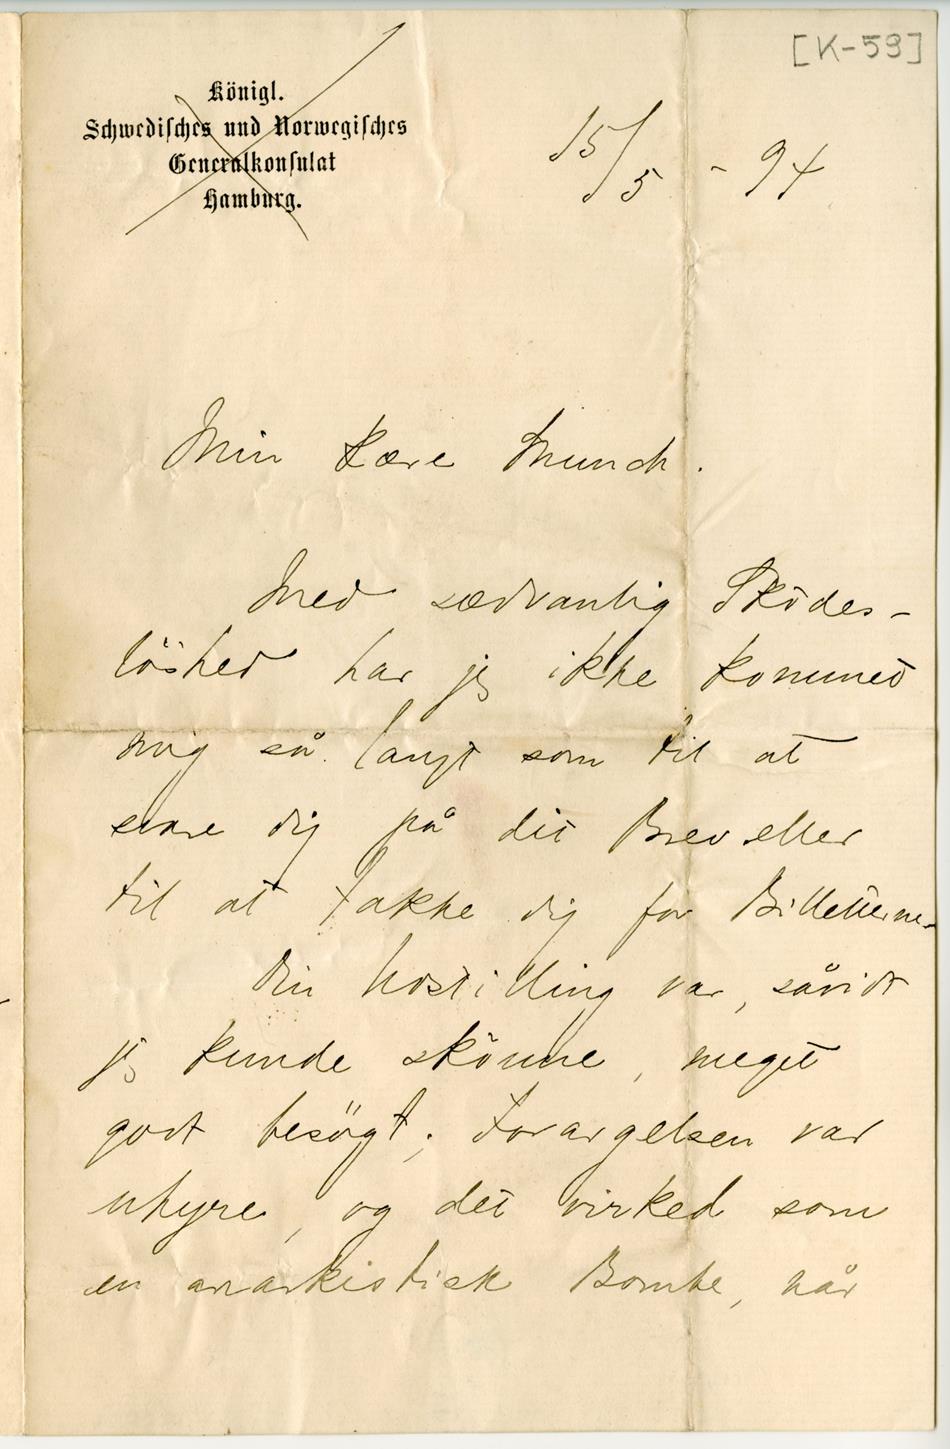 [K-59]
Königl.
Schwedisches und Norwegisches
Generalkonsulat
Hamburg.
15/5 - 94
Min kære Munch.
Med sædvanlig Sködes-
löshed har jeg ikke kommet
mig så langt som til at
svare dig på dit Brev eller
til at takke dig for Billetterne.
Din Udstilling var, såvidt
jeg kunde skönne, meget
godt besögt; Forargelsen var
uhyre, og det virked som
en anarkistisk Bombe, når